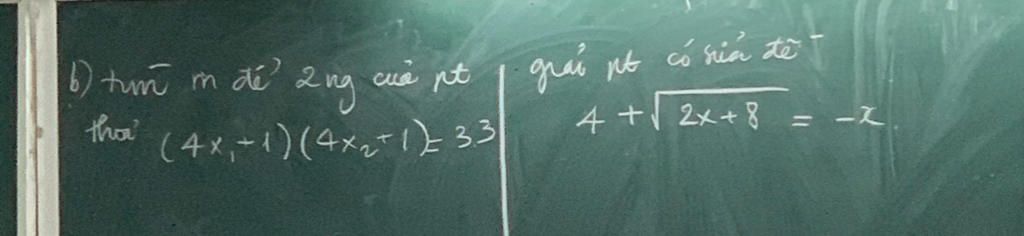 b) tìm m để 2 ng của pt
thoả (4x₁+1)(4x₂+1)=33
giải pt có
4+√(2x+8) = -x